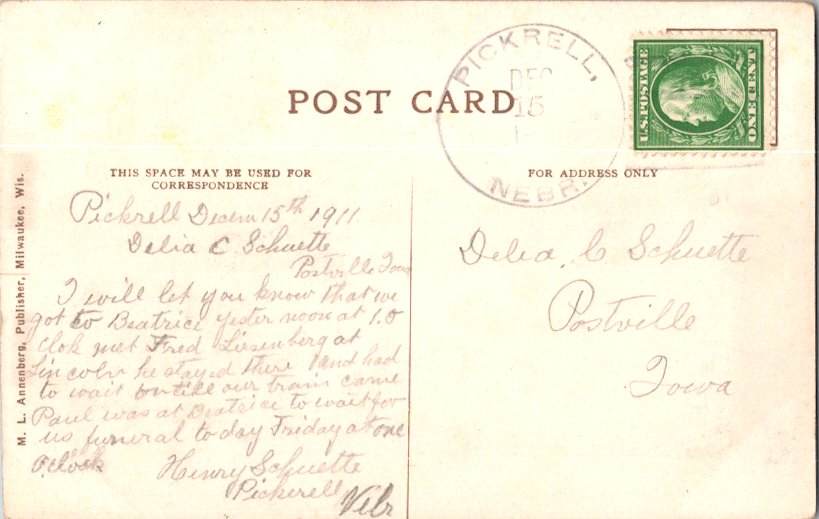 POST CARD
PICKRELL,
DEC
15
NEBR.
U.S. POSTAGE
ONE CENT
THIS SPACE MAY BE USED FOR
CORRESPONDENCE
FOR ADDRESS ONLY
M. L. Annenberg, Publisher, Milwaukee, Wis.
Pickrell Decem 15th 1911
Delia C Schuette
Postville Iowa
I will let you know that we
got to Beatrice yester noon at 1.0
clok met Fred Liesenberg at
Lincoln he stayed there and had
to wait untill our train came
Paul was at Beatrice to wait for
us funeral to day Friday at one
o'clock
Henry Schuette
Pickerell Nebr
Delia C Schuette
Postville
Iowa